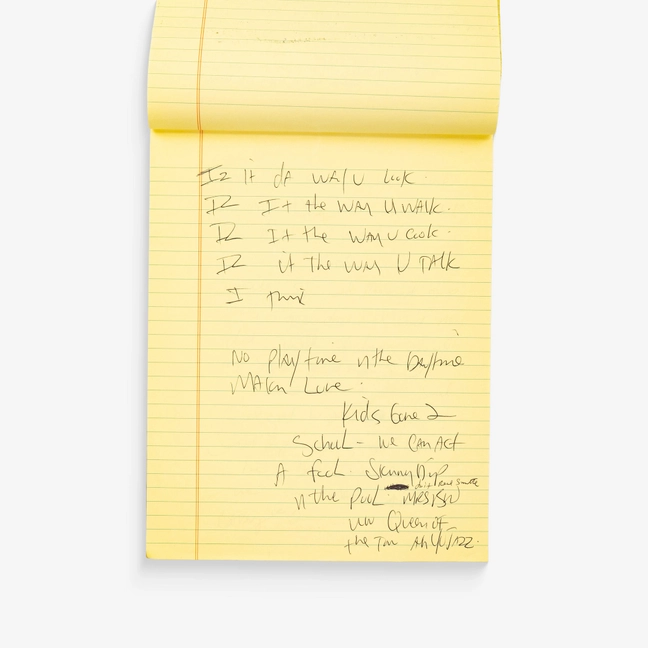 Iz it dA WAy U look.
IZ It the WAy U WAlk.
IZ It the WAy U Cook.
IZ it The WAy U TAlk
I think
No playtime n the Daytime
MAkn Love.
Kids Gone 2
School - We CAn Act
A fool. Skinny Dip
n the pool.
Queen of
the